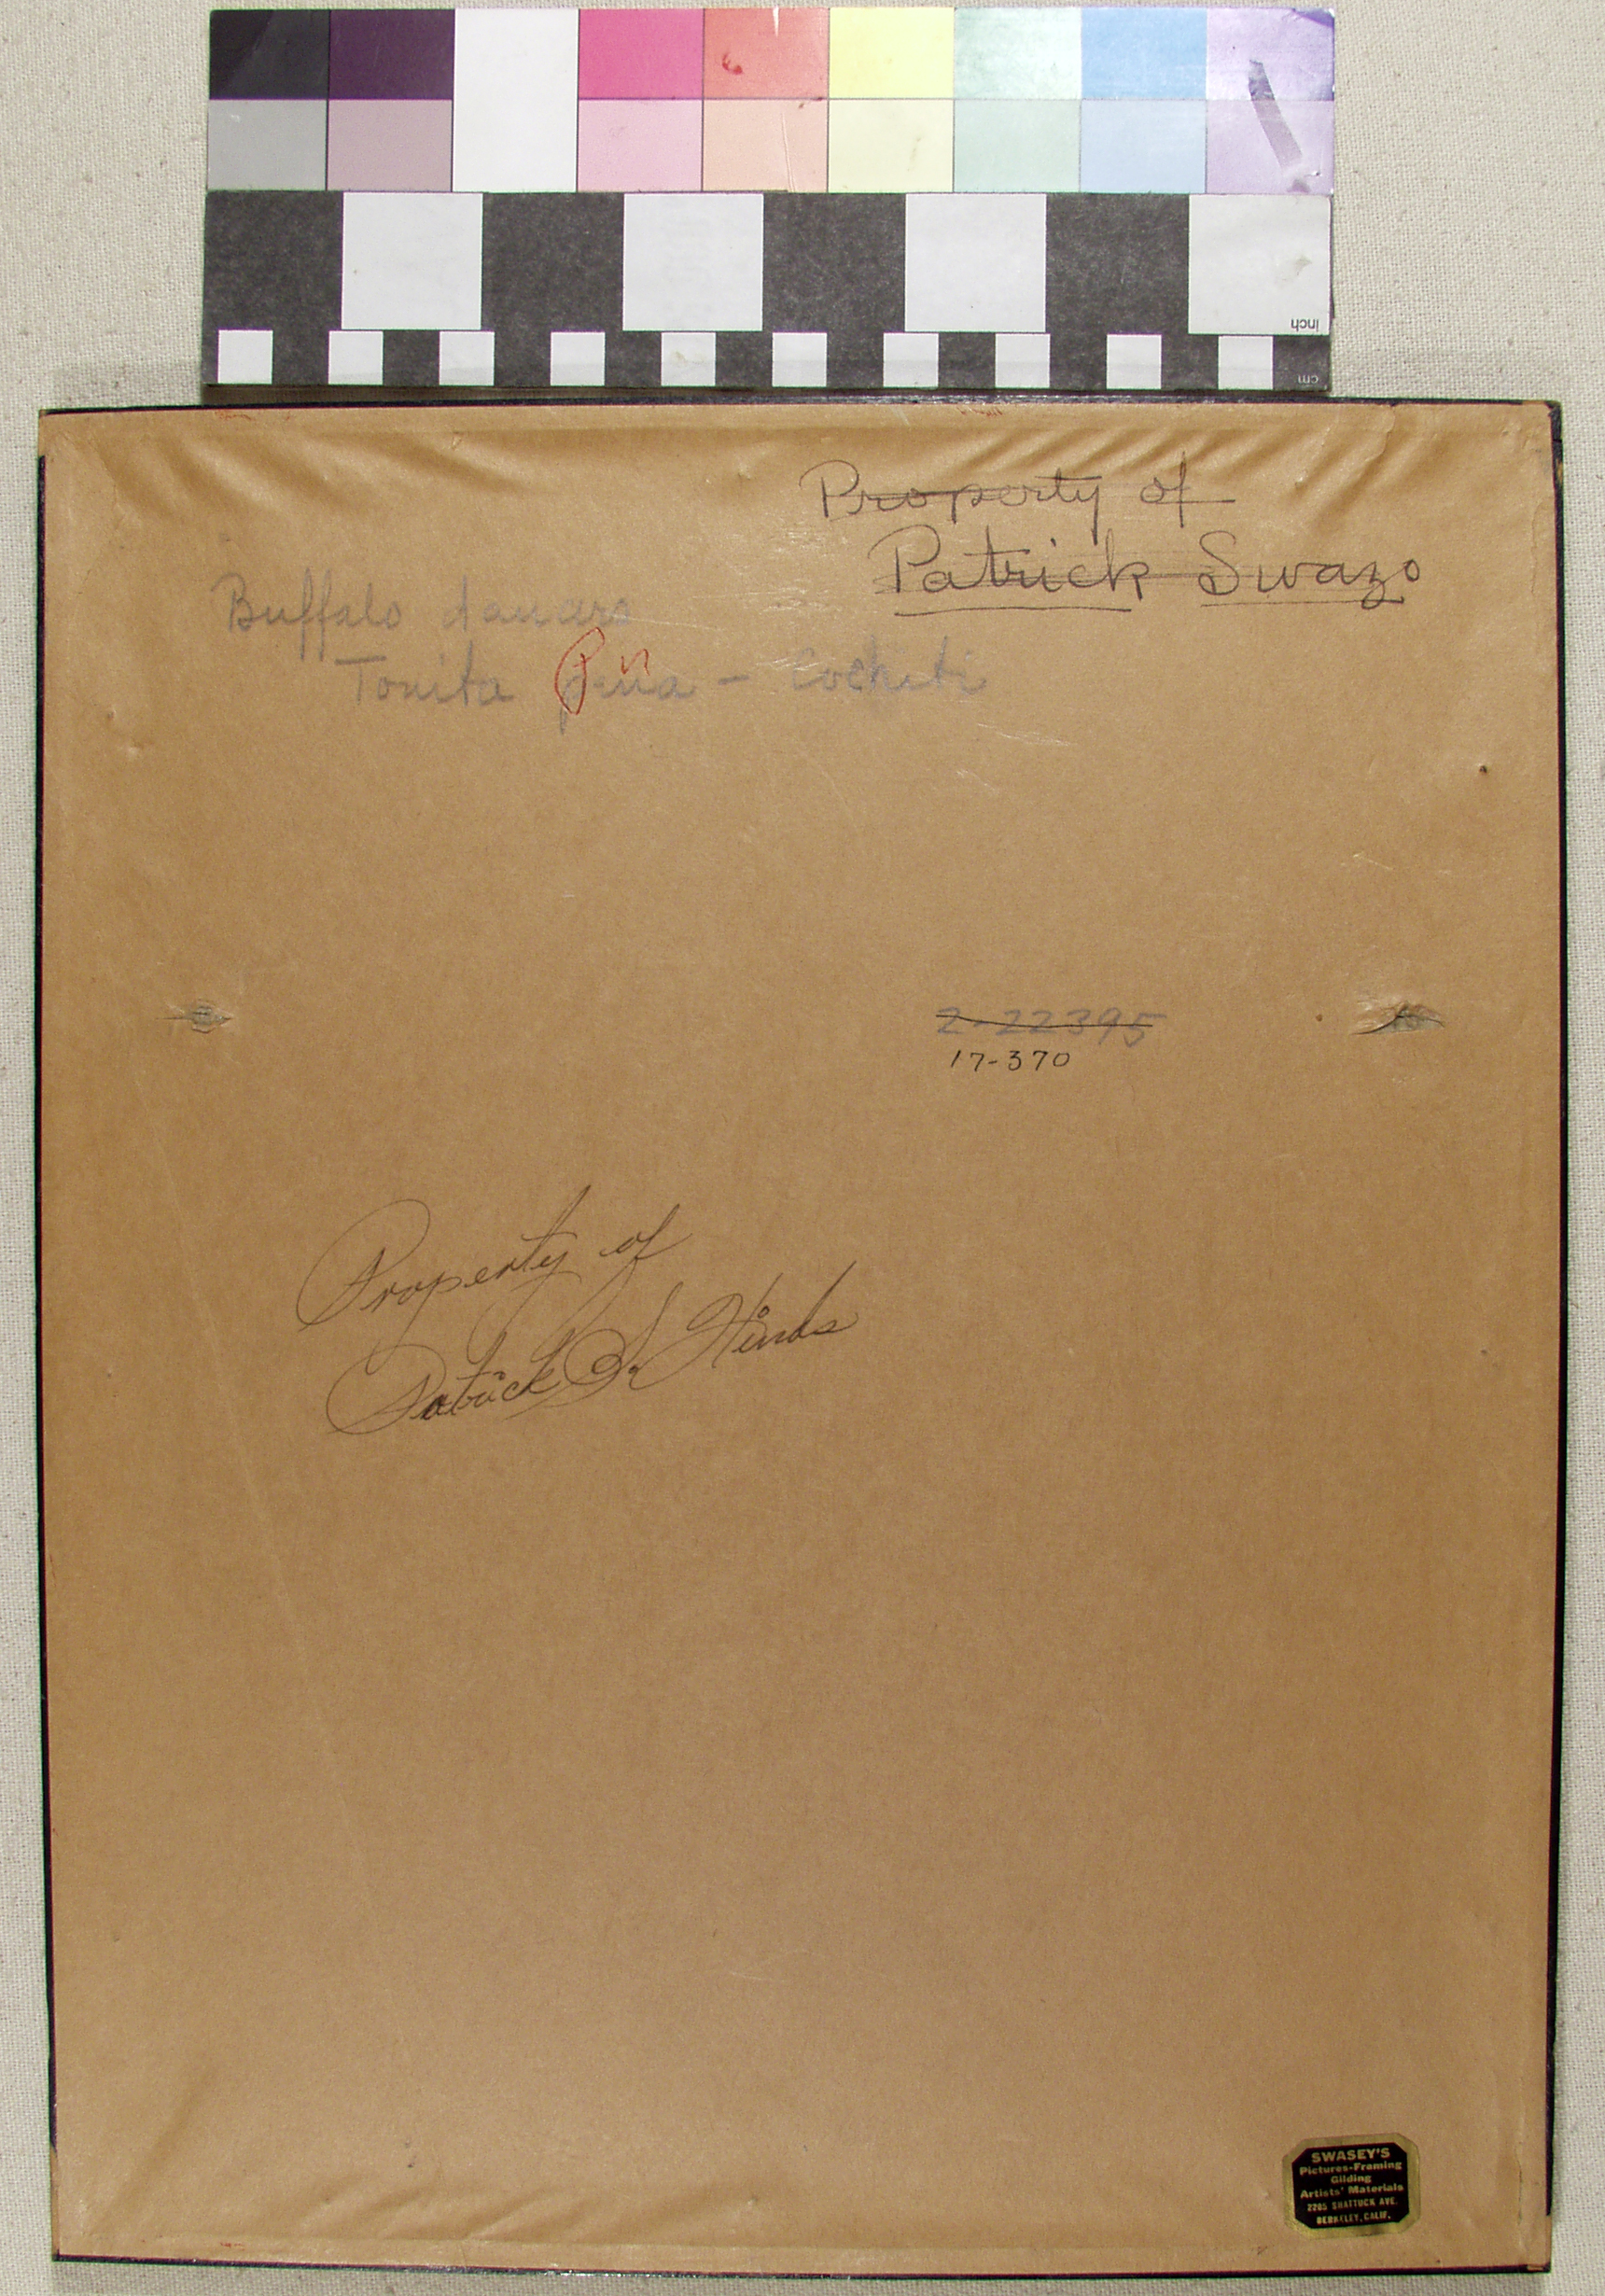 inch
cm
Property of
Patrick Swazo
Buffalo dancers
Tonita Peña - Cochiti
2-22395
17-370
Property of
Patrick S. Hinds
SWASEY'S
Pictures-Framing
Gilding
Artists' Materials
2205 SHATTUCK AVE.
BERKELEY, CALIF.